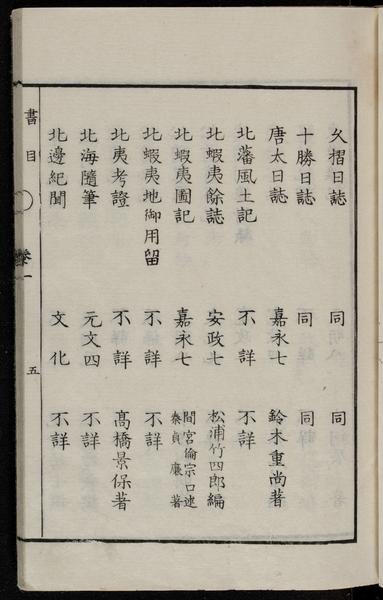 久摺日誌 同 同
十勝日誌 同 同
唐太日誌 嘉永七 鈴木重尚著
北藩風土記 不詳 不詳
北蝦夷餘誌 安政七 松浦竹四郎編
北蝦夷圖記 嘉永七 間宮倫宗口述 秦貞廉著
北蝦夷地御用留 不詳 不詳
北夷考證 不詳 高橋景保著
北海隨筆 元文四 不詳
北邊紀聞 文化 不詳
書目 卷一 五